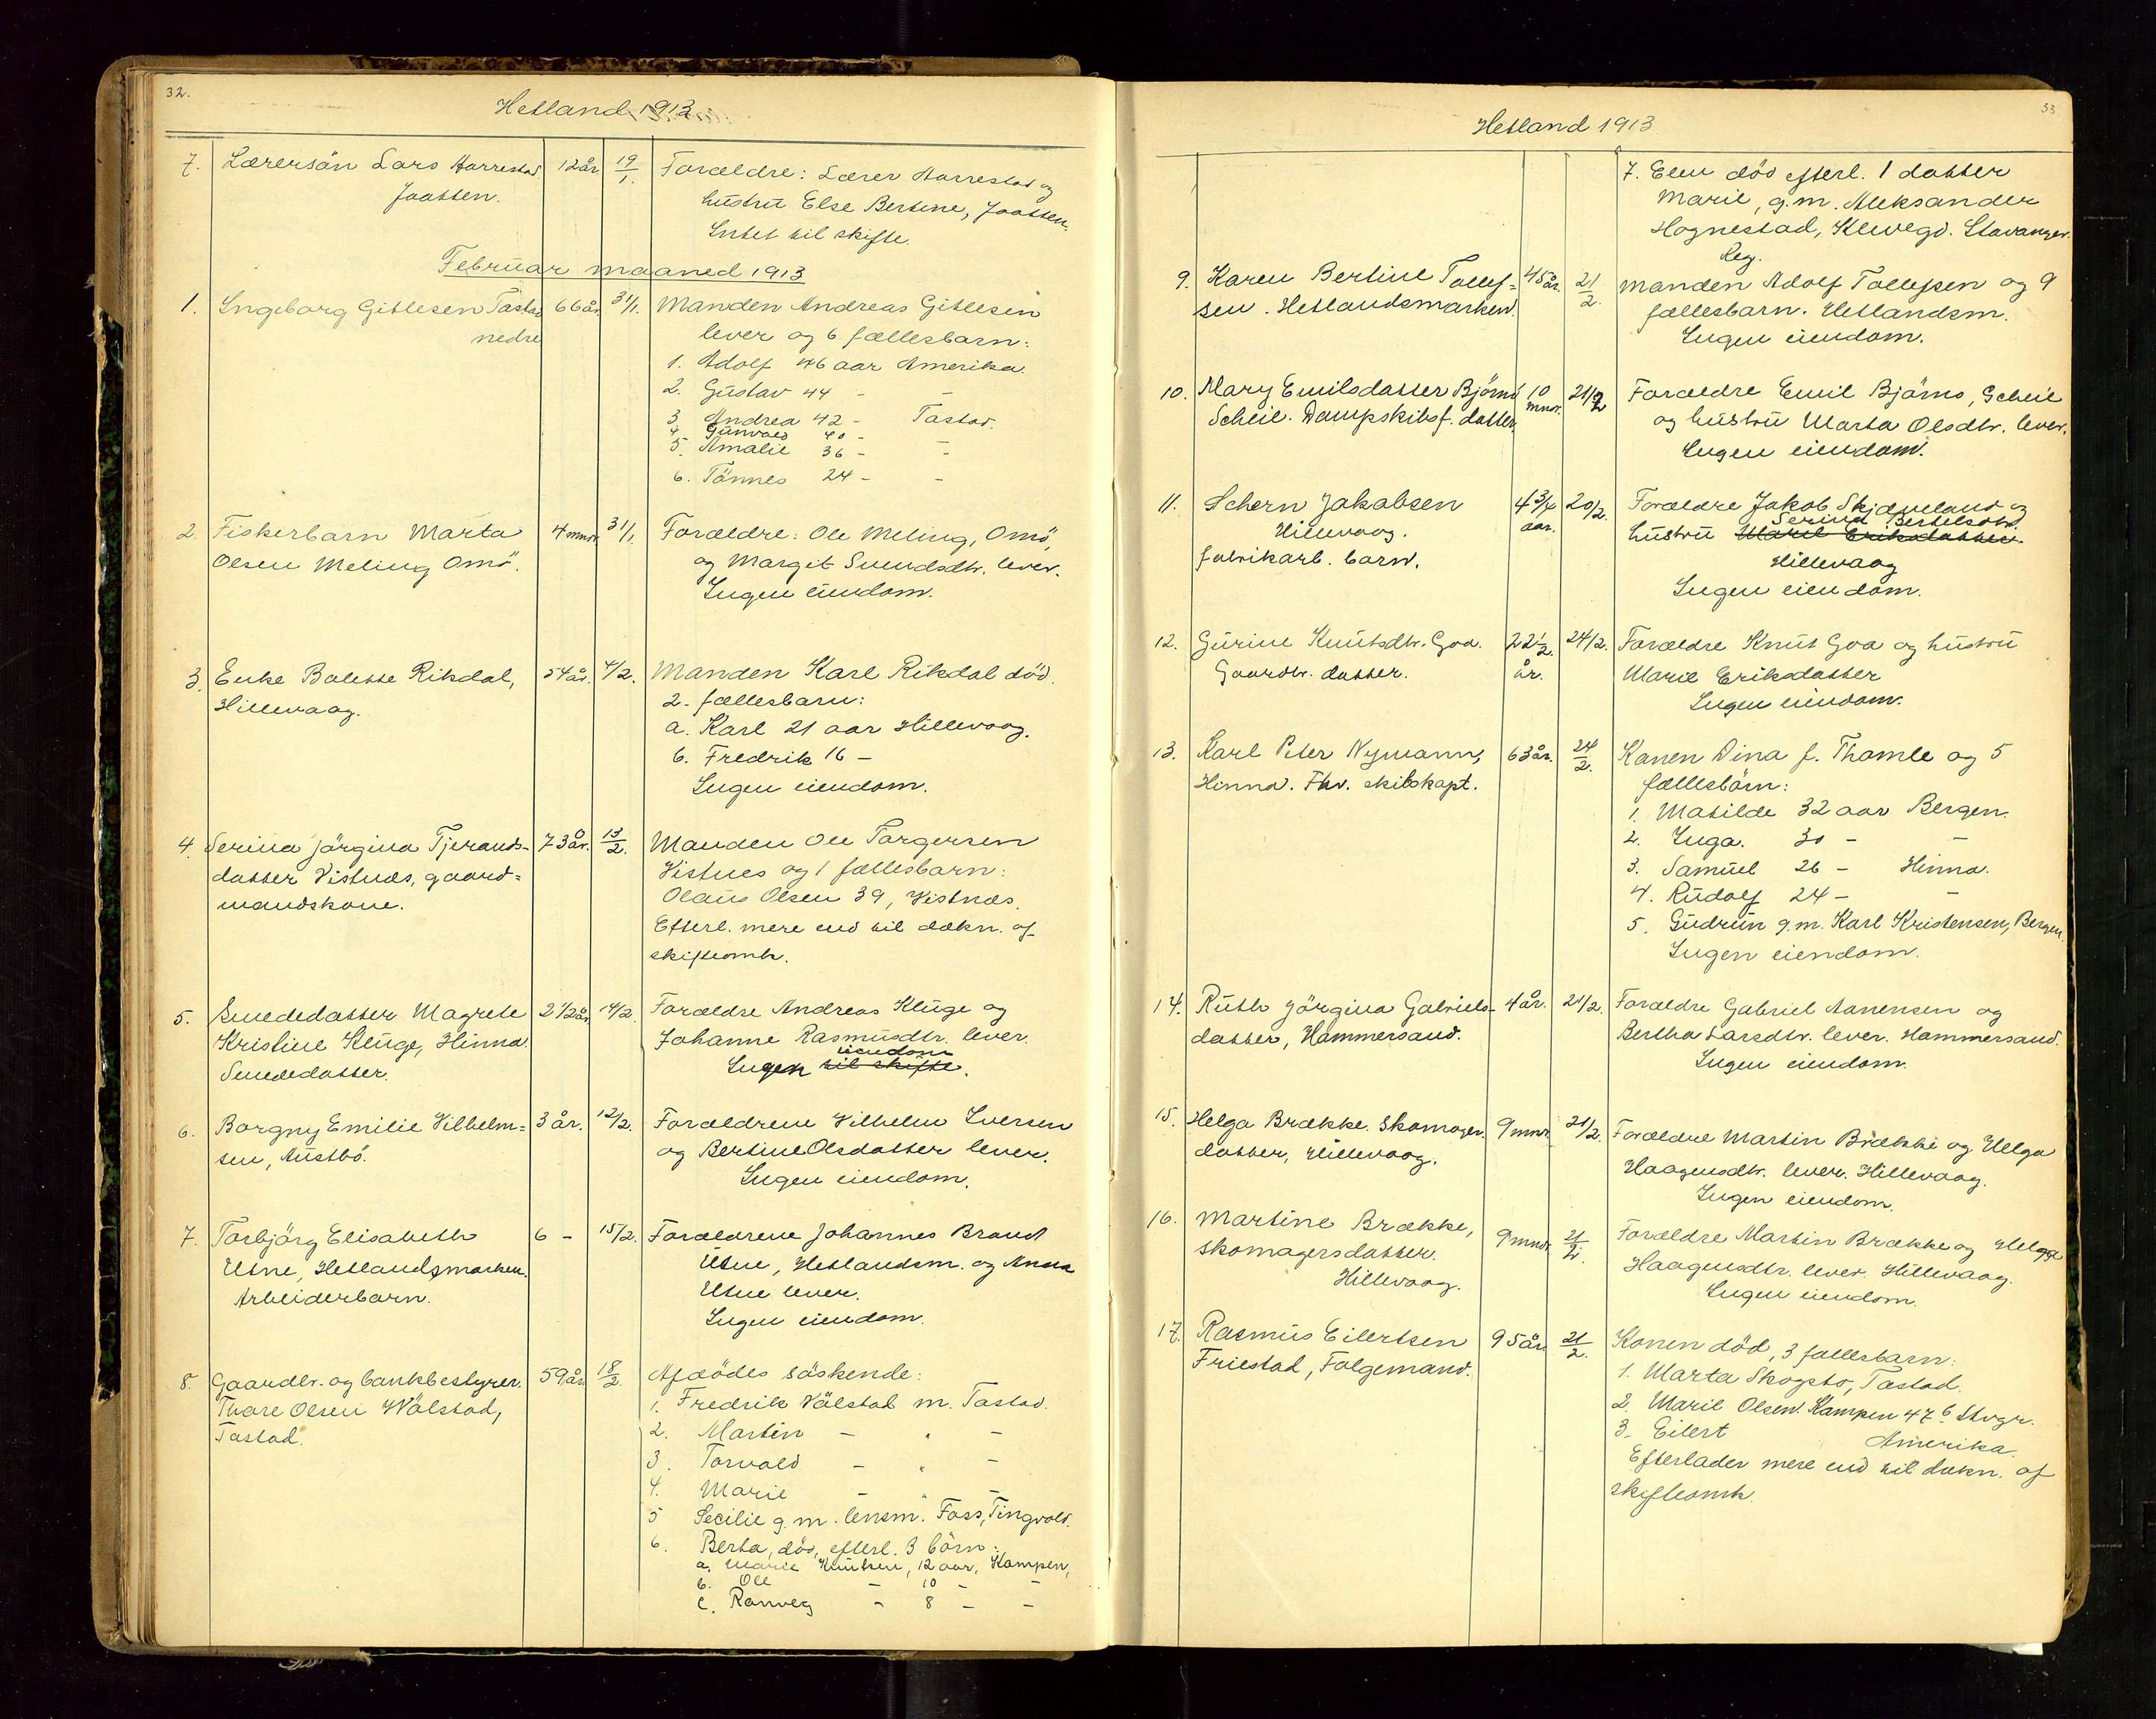 32.
Hetland 1913
7. Lærersön Lars Harrestad 12 år 19/1. Forældre: Lærer Harrestad og
Jaatten. hustru Else Bertine, Jaatten.
Intet til skifte.
Februar maaned 1913
1. Ingeborg Gitlesen Tastad 66 år 31/1. Manden Andreas Gitlesen
nedre lever og 6 fællesbarn:
1. Adolf 46 aar Amerika.
2. Gustav 44 - -
3 Andrea 42 - Tastad.
4. Gunvald 40 -
5. Amalie 36 - -
6. Tönnes 24 - -
2. Fiskerbarn Marta 4 mndr. 31/1. Forældre: Ole Meling, Omö,
Olsen Meling Omö. og Margit Svendsdtr. lever.
Ingen eiendom.
3. Enke Balette Rikdal, 54 år. 4/2. Manden Karl Rikdal död.
Hillevaag. 2. fællesbarn:
a. Karl 21 aar Hillevaag.
b. Fredrik 16 -
Ingen eiendom.
4. Serina Jörgina Tjerands- 73 år. 13/2. Manden Ole Torgersen
datter Vistnæs, gaard- Vistnes og 1 fællesbarn:
mandskone. Olaus Olsen 39, Vistnæs.
Efterl. mere end til dækn. af
skifteomk.
5. Smededatter Magrete 2 1/2 år 14/2. Forældre Andreas Kluge og
Kristine Kluge, Hinna. Johanne Rasmusdtr. lever.
Smededatter. eiendom
Ingen til skifte.
6. Borgny Emilie Vilhelm- 3 år. 12/2. Forældrene Vilhelm Iversen
sen, Austbö. og Bertine Olsdatter lever.
Ingen eiendom.
7. Torbjörg Elisabeth 6 - 15/2. Forældrene Johannes Brand
Utne, Hetlandsmarken. Utne, Hetlandsm. og Anna
Arbeiderbarn. Utne lever.
Ingen eiendom.
8. Gaardbr. og bankbestyrer. 59 år 18/2. Afdödes söskende:
Thore Olsen Wälstad, 1. Fredrik Välstad m. Tastad.
Tastad. 2. Martin - " -
3. Torvald - " -
4. Marie - " -
5 Secilie g. m. lensm. Foss, Tingvold.
6. Berta, död, efterl. 3 börn:
a. Marie Knutsen, 12 aar, Kampen,
b. Ole - 10 - -
c. Ranveg - 8 - -
33
Hetland 1913
7. Elen död efterl. 1 datter
Marie, g. m. Aleksander
Hognestad, Klevegd. Stavanger.
Reg.
9. Karen Bertine Tollef- 45 år. 21/2. Manden Adolf Tollefsen og 9
sen. Hetlandsmarken. fællesbarn. Hetlandsm.
Ingen eiendom.
10. Mary Emilsdatter Björnö 10 21/2 Forældre Emil Björnö, Scheie
Scheie. Dampskibsf. datter. mndr. og hustru Marta Olsdtr. lever.
Ingen eiendom.
11. Schern Jakobsen 4 3/4 20/2. Forældre Jakob Skjæveland og
Hillevaag. aar. Serina Bertelsdtr.
fabrikarb. barn. hustru Marie Eriksdatter.
Hillevaag
Ingen eiendom.
12. Gurine Knutsdtr. Goa. 22 1/2. 24/2. Forældre Knut Goa og hustru
Gaardbr. datter. år. Marie Eriksdatter
Ingen eiendom.
13. Karl Peter Nymann, 63 år. 24/2. Konen Dina f. Thomle og 5
Hinna. Fhv. skibskapt. fællesbörn:
1. Matilde 32 aar Bergen.
2. Inga. 30 - -
3. Samuel 26 - Hinna.
4. Rudolf 24 - -
5. Gudrun g. m. Karl Kristensen, Bergen.
Ingen eiendom.
14. Ruth Jörgina Gabriels- 4 år. 21/2. Forældre Gabriel Aanensen og
datter, Hammersand. Bertha Larsdtr. lever. Hammersand.
Ingen eiendom.
15. Helga Brække. Skomager- 9 mndr. 21/2. Forældre Martin Brække og Helga
datter, Hillevaag. Haagensdtr. lever. Hillevaag.
Ingen eiendom.
16. Martine Brække, 9 mndr. 21/2. Forældre Martin Brække og Helga
skomagersdatter. Haagensdtr. lever. Hillevaag.
Hillevaag. Ingen eiendom.
17. Rasmus Eilertsen 95 år. 21/2. Konen död, 3 fællesbarn:
Friestad, Folgemand. 1. Marta Skogstö, Tastad.
2. Marie Olsen. Kampen 47 b Stvgr.
3. Eilert Amerika.
Efterlader mere end til dækn. af
skifteomk.